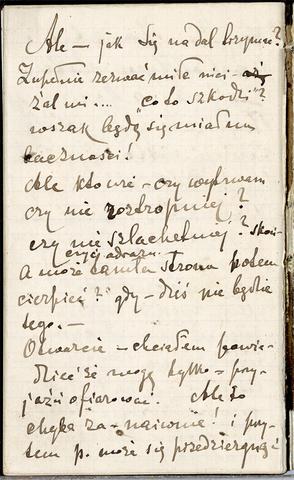 Ale – jak się na dal trzymać?
Zupełnie zerwać miłe nici –
żal mi.... "co to szkodzi"?
wszak będę się miał na
baczności!
Ale kto wie – czy wytrwam
czy nie roztropniej?
czy nie szlachetniej? skoń-
czyć odrazu –
a może tamta strona potem
cierpieć? gdy – dziś nie będzie
tego. –
Otwarcie – chciałem powie-
dzieć że mogę tylko – przy-
jaźń ofiarować. Ale to
chyba za – naiwnie! i przy-
tem p. może się przedzierzgnąć